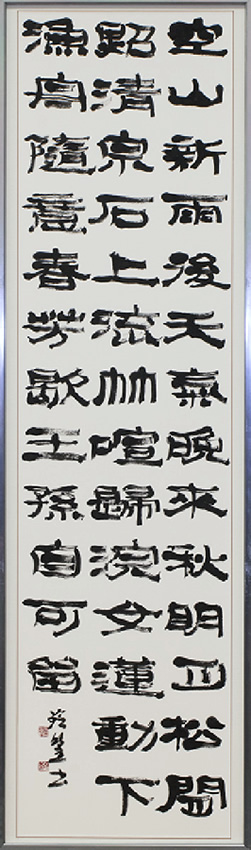 空山新雨後天氣晚來秋明月松間
炤清泉石上流竹喧歸浣女蓮動下
漁舟隨意春芳歇王孫自可留